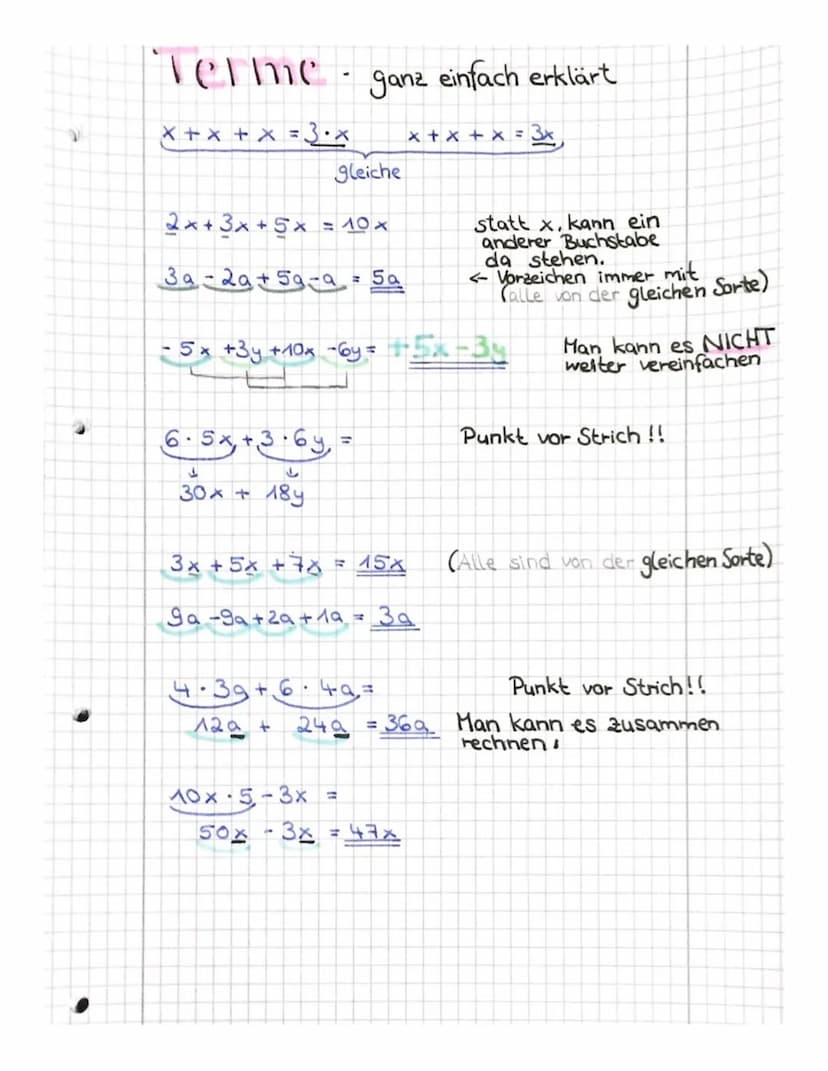 Terme - ganz einfach erklärt
x + x + x = 3 · x x + x + x = 3x
gleiche
2x + 3x + 5x = 10x
statt x, kann ein
anderer Buchstabe
da stehen.
3a - 2a + 5a - a = 5a
← Vorzeichen immer mit
(alle von der gleichen Sorte)
- 5x + 3y + 10x - 6y = +5x - 3y
Man kann es NICHT
weiter vereinfachen
6 · 5x + 3 · 6y =
Punkt vor Strich!!
↓ ↓
30x + 18y
3x + 5x + 7x = 15x (Alle sind von der gleichen Sorte)
9a - 9a + 2a + 1a = 3a
4 · 3a + 6 · 4a = Punkt vor Strich!!
12a + 24a = 36a Man kann es zusammen
rechnen.
10x · 5 - 3x =
50x - 3x = 47x